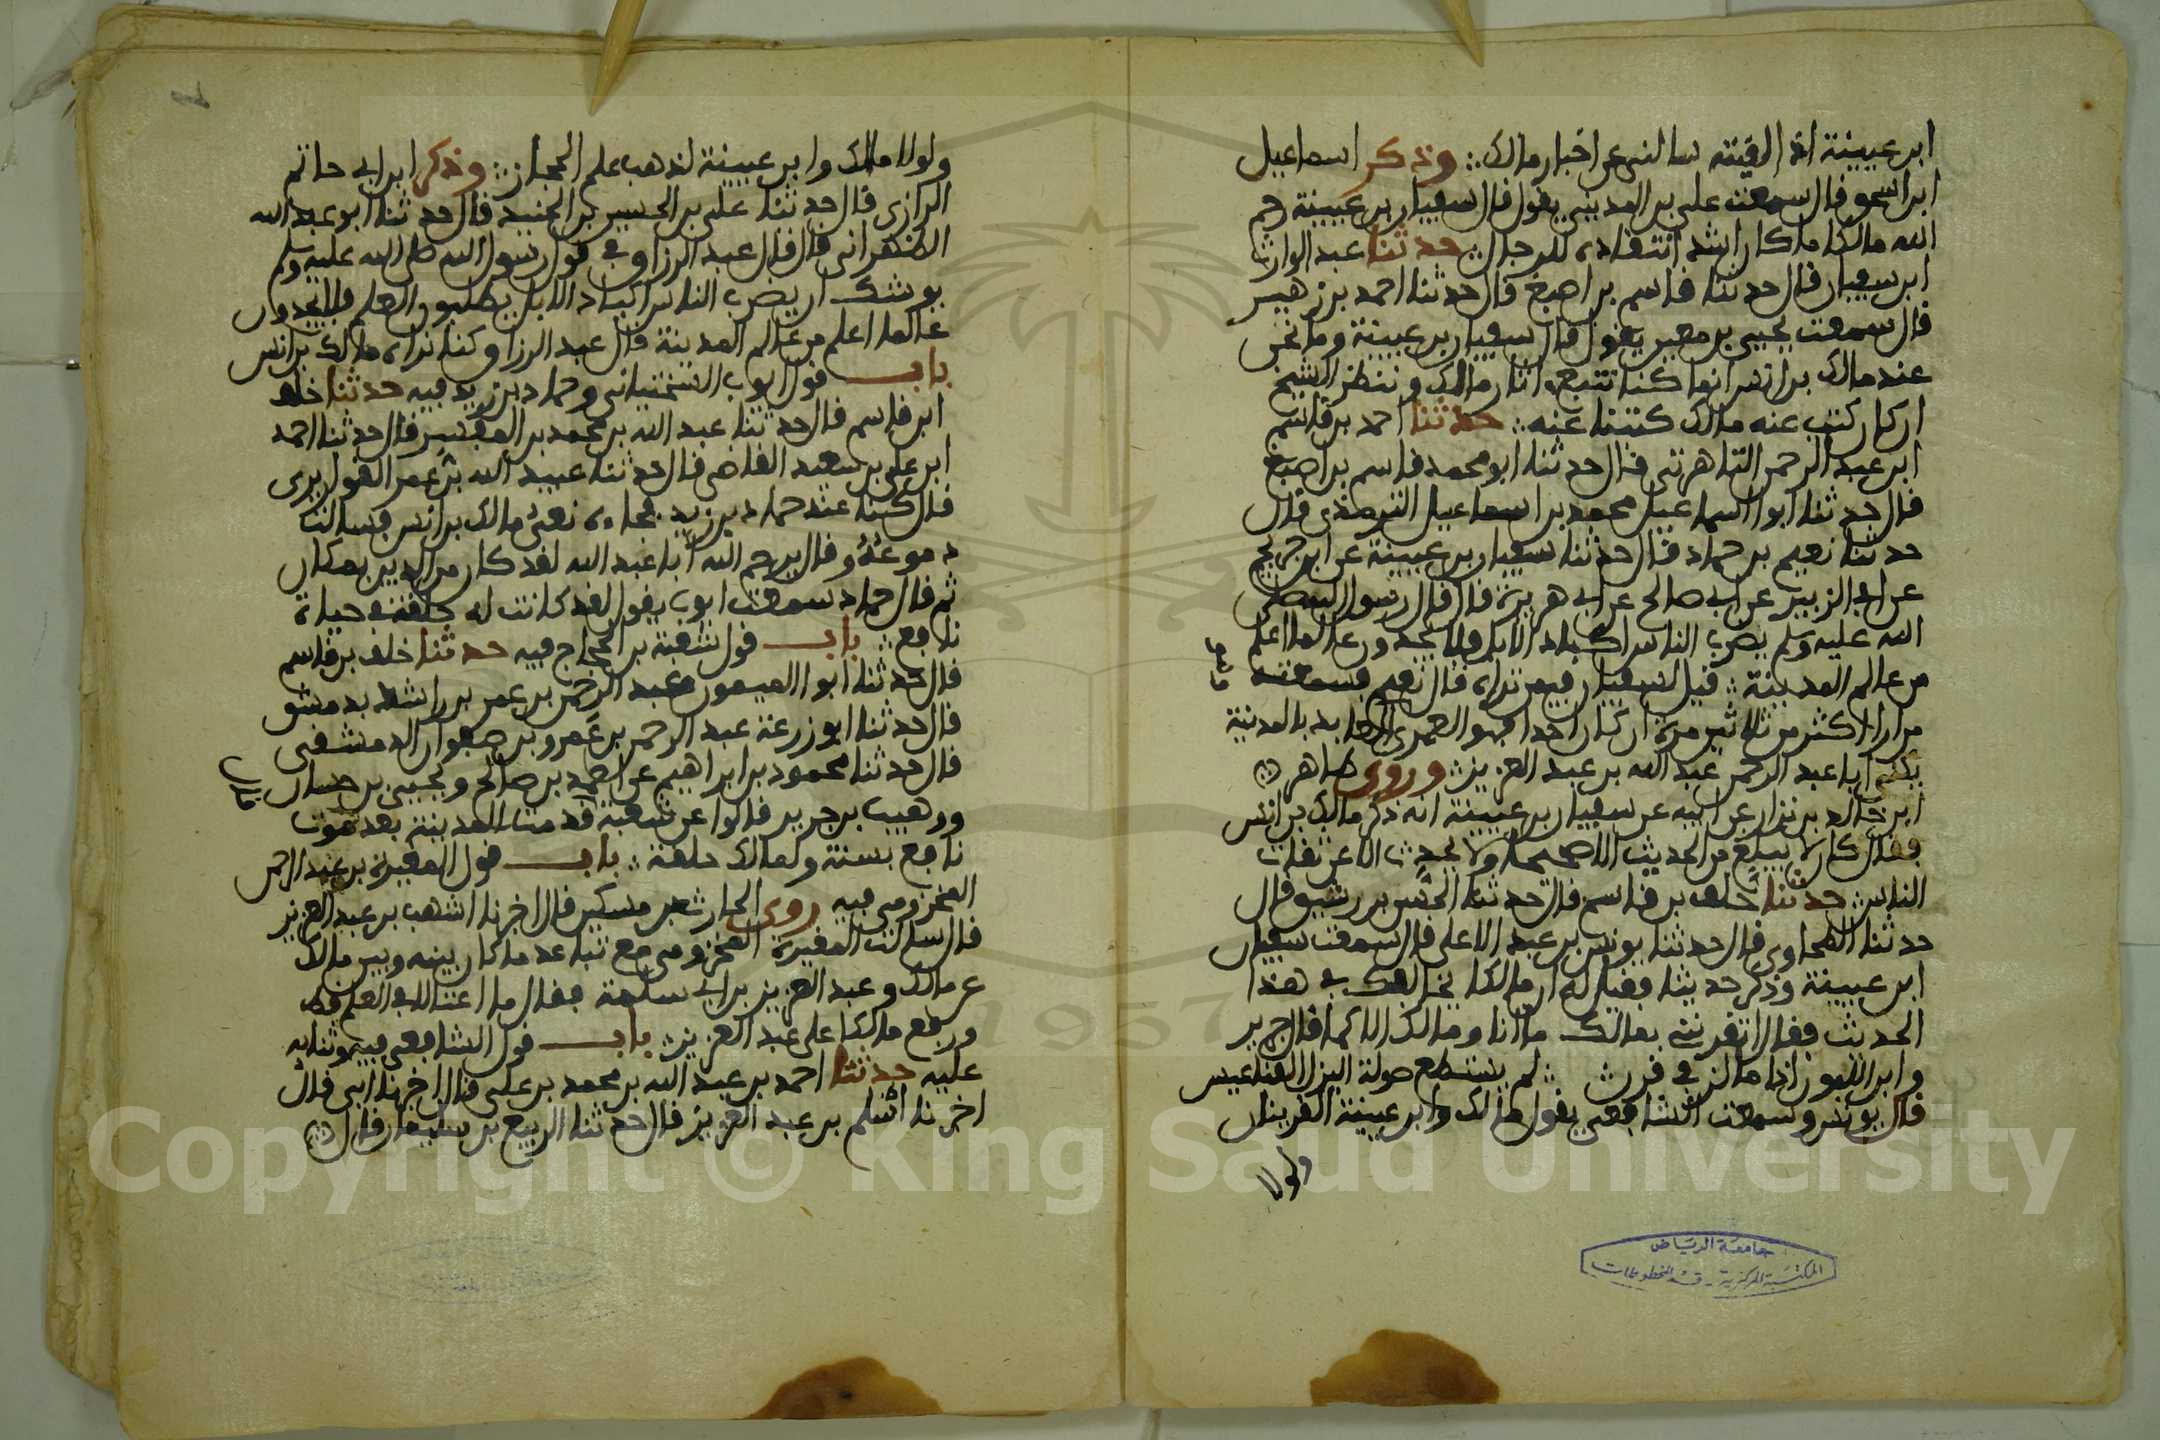 ابن عيينة اذا لقيته سالني عن اخبار مالك ∴ وذكر اسماعيل
ابن اسحق قال سمعت علي بن المديني يقول قال سفيان بن عيينة رحم
الله مالكا ما كان اشد انتقاده للرجال ∴ حدثنا عبد الوارث
ابن سفيان قال حدثنا قاسم بن اصبغ قال حدثنا احمد بن زهير
قال سمعت يحيى بن معين يقول قال سفيان بن عيينة وما نحن
عند مالك بن انس انما كنا نتبع اثار مالك وننظر الشيخ
ان كان كتب عنه مالك كتبنا عنه ∴ حدثنا احمد بن قاسم
ابن عبد الرحمن التاهرتي قال حدثنا ابو محمد قاسم بن اصبغ
قال حدثنا ابو اسماعيل محمد بن اسماعيل الترمذي قال
حدثنا نعيم بن حماد قال حدثنا سفيان بن عيينة عن ابن جريج
عن ابي الزبير عن ابي صالح عن ابي هريرة قال قال رسول الله صلى
الله عليه وسلم يضرب الناس اكباد الابل فلا يجدون عالما اعلم
من عالم المدينة ∴ قيل لسفيان فيمن تراه قال نعيم فسمعته
مرارا اكثر من ثلاثين مرة ان كان احدا فهو العمري العابد بالمدينة
يكنى ابا عبد الرحمن عبد الله بن عبد العزيز ∴ وروى طاهر
ابن خالد بن نزار عن ابيه عن سفيان بن عيينة انه ذكر مالك بن انس
فقال كان لا يبلغ من الحديث الا صحيحا ولا يحدث الا عن ثقات
الناس ∴ حدثنا خلف بن قاسم قال حدثنا الحسن بن رشيق قال
حدثنا الطحاوي قال حدثنا يونس بن عبد الاعلى قال سمعت سفيان
ابن عيينة وذكر حديثا فقيل له ان مالكا يخالفك في هذا
الحديث فقال اتقرنني بمالك ما انا ومالك الا كما قال جرير
وابن اللبون اذا ما لز في قرن ∴ لم يستطع صولة البزل القناعيس
قال يونس وسمعت الشافعي يقول مالك وابن عيينة القرينان
ولولا
جامعة الرياض
المكتبة المركزية - قسم المخطوطات
ولولا مالك وابن عيينة لذهب علم الحجاز ∴ وذكر ابن ابي حاتم
الرازي قال حدثنا علي بن الحسين بن الجنيد قال حدثنا ابو عبد الله
الطهراني قال قال عبد الرزاق في قول رسول الله صلى الله عليه وسلم
يوشك ان يضرب الناس اكباد الابل يطلبون العلم فلا يجدون
عالما اعلم من عالم المدينة قال عبد الرزاق وكنا نراه مالك بن انس
باب قول ايوب السختياني وحماد بن زيد فيه حدثنا خلف
ابن قاسم قال حدثنا عبد الله بن محمد بن المفسر قال حدثنا احمد
ابن علي بن سعيد القاضي قال حدثنا عبيد الله بن عمر القواريري
قال كنا عند حماد بن زيد فجاءه نعي مالك بن انس فسالت
دموعه وقال يرحم الله ابا عبد الله لقد كان من الدين بمكان
ثم قال حماد سمعت ايوب يقول لقد كانت له حلقة في حياة
نافع ∴ باب قول شعبة بن الحجاج فيه حدثنا خلف بن قاسم
قال حدثنا ابو الميمون عبد الرحمن بن عمر بن راشد بدمشق
قال حدثنا ابو زرعة عبد الرحمن بن عمرو بن صفوان الدمشقي
قال حدثنا محمود بن ابراهيم عن احمد بن صالح ويحيى بن حسان
ووهيب بن جرير قالوا عن شعبة قدمت المدينة بعد موت
نافع بسنة ولمالك حلقة ∴ باب قول المغيرة بن عبد الرحمن
المخزومي فيه روى الحارث بن مسكين قال اخبرنا اشهب بن عبد العزيز
قال سالت المغيرة المخزومي مع تباعد ما كان بينه وبين مالك
عن مالك وعبد العزيز بن ابي سلمة فقال ما اعتدلا في العلم قط
ورفع مالكا على عبد العزيز ∴ باب قول الشافعي فيه وثنائه
عليه حدثنا احمد بن عبد الله بن محمد بن علي قال اخبرنا ابي قال
اخبرنا اسلم بن عبد العزيز قال حدثنا الربيع بن سليمان قال
Copyright © King Saud University
1957